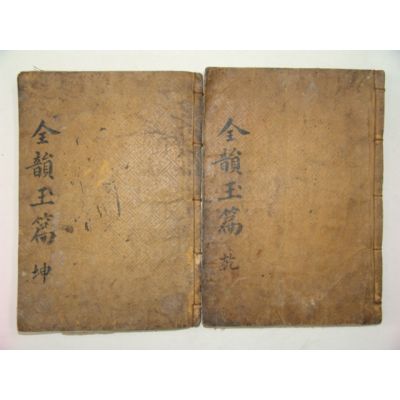 全韻玉篇 坤
全韻玉篇 乾